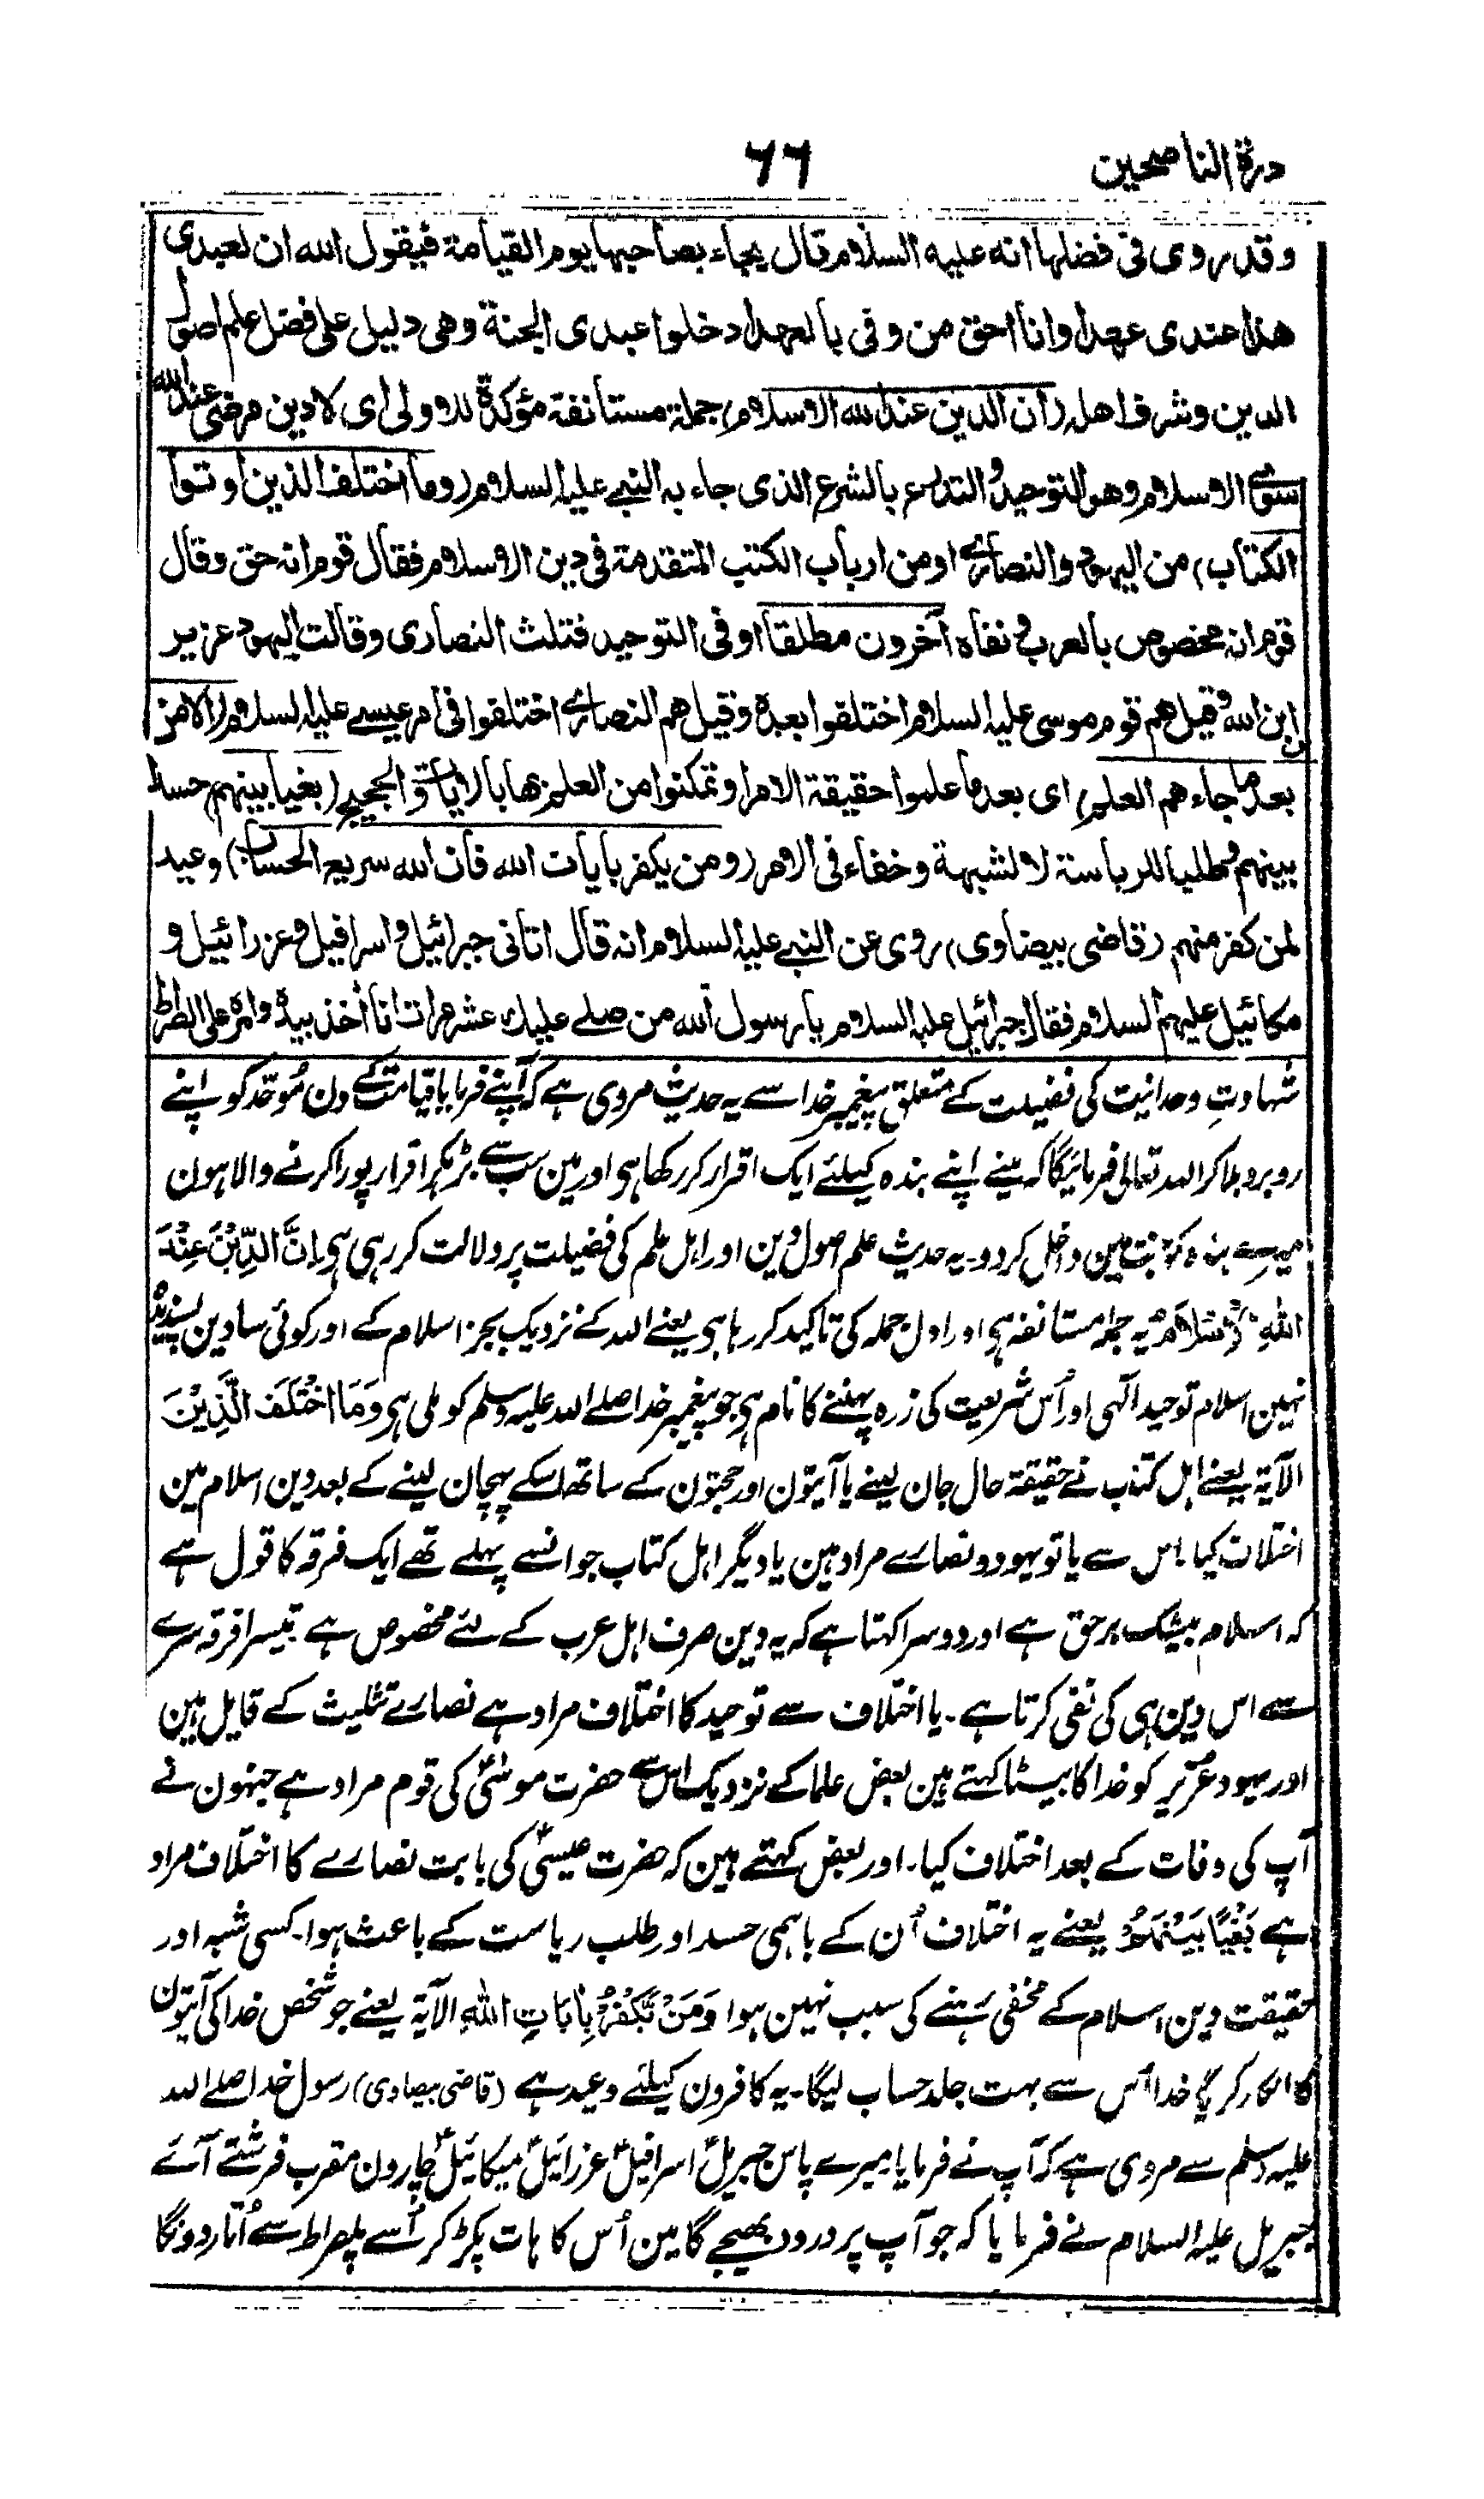 درة الناصحين
۶۶
وقد روى فى فضلها انه عليه السلام قال يجاء بصاحبها يوم القيامة فيقول الله ان لعبدى
هذا عندى عهدا وانا احق من وفى بالعهد ادخلوا عبدى الجنة وهى دليل على فضل علم اصول
الدين وشرف اهله (ان الدين عند الله الاسلام) جملة مستأنفة مؤكدة للاولى اى لا دين مرضى عند الله
سوى الاسلام وهو التوحيد و التدرع بالشرع الذى جاء به النبي عليه السلام (وما اختلف الذين اوتوا
الكتاب) من اليهود والنصارى او من ارباب الكتب المتقدمة فى دين الاسلام فقال قوم انه حق وقال
قوم انه مخصوص بالعرب و نفاه آخرون مطلقا او فى التوحيد فثلث النصارى وقالت اليهود عزير
ابن الله وقيل هم قوم موسى عليه السلام اختلفوا بعده وقيل هم النصارى اختلفوا فى امر عيسى عليه السلام (الا من
بعد ما جاءهم العلم) اى بعد ما علموا حقيقة الامر او تمكنوا من العلم بها بالايات والحجج (بغيا بينهم) حسدا
بينهم وطلبا للرياسة لا لشبهة وخفاء فى الامر (ومن يكفر بايات الله فان الله سريع الحساب) وعيد
لمن كفر منهم (قاضى بيضاوى) روى عن النبي عليه السلام انه قال اتانى جبرائيل و اسرافيل و عزرائيل و
مكائيل عليهم السلام فقال جبرائيل عليه السلام يا رسول الله من صلے عليك عشر مرات انا اٰخذ بيده وامره على الصراط
شہادتِ وحدانیت کی فضیلت کے متعلق پیغمبر خدا سے یہ حدیث مروی ہے کہ آپنے فرمایا قیامت کے دن مُوحّد کو اپنے
روبرو بلا کر اللہ تعالی فرمائیگا کہ مینے اپنے بندہ کیلئے ایک اقرار کر رکھا ہی اور مین سب سے بڑہکر اقرار پورا کرنے والا ہون
میرے بندہ کو جنت مین داخل کردو۔ یہ حدیث علم اصول دین اور اہل علم کی فضیلت پر دلالت کر رہی ہی اِنَّ الدِّیْنَ عِنْدَ
اللہِ الْاِسْلَامُ یہ جملہ مستانفہ ہی اور اول جملہ کی تاکید کر رہا ہی یعنے اللہ کے نزدیک بجز اسلام کے اور کوئی سا دین پسندیدہ
نہین اسلام توحید الٰہی اور اُس شریعت کی زرہ پہننے کا نام ہی جو پیغمبر خدا صلے اللہ علیہ وسلم کو ملی ہی وَمَا اخْتَلَفَ الَّذِیْنَ
الآیۃ یعنے اہل کتاب نے حقیقۃ حال جان لینے یا آیتون اور حجتون کے ساتھ اسکے پہچان لینے کے بعد دین اسلام مین
اختلاف کیا۔ اس سے یا تو یہود و نصارے مراد ہین یا دیگر اہل کتاب جو انسے پہلے تھے ایک فرقہ کا قول ہے
کہ اسلام بیشک برحق ہے اور دوسرا کہتا ہے کہ یہ دین صرف اہل عرب کے لئے مخصوص ہے۔ تیسرا فرقہ سرے
سے اس دین ہی کی نفی کرتا ہے۔ یا اختلاف سے توحید کا اختلاف مراد ہے نصارے تثلیث کے قایل ہین
اور یہود عُزَیر کو خدا کا بیٹا کہتے ہین بعض علما کے نزدیک اس سے حضرت موسٰیؑ کی قوم مراد ہے جنہون نے
آپ کی وفات کے بعد اختلاف کیا۔ اور بعض کہتے ہین کہ حضرت عیسٰیؑ کی بابت نصارے کا اختلاف مراد
ہے بَغْیًا بَیْنَہُمْ یعنے یہ اختلاف اُن کے باہمی حسد اور طلب ریاست کے باعث ہوا۔ کسی شبہ اور
حقیقت دین اسلام کے مخفی رہنے کی سبب نہین ہوا وَمَنْ یَّکْفُرْ بِاٰیَاتِ اللہِ الآیۃ یعنے جو شخص خدا کی آیتون
کا انکار کریگا خدا اُس سے بہت جلد حساب لیگا۔ یہ کافرون کیلئے وعید ہے (قاضی بیضاوی) رسول خدا صلے اللہ
علیہ وسلم سے مروی ہے کہ آپ نے فرمایا میرے پاس جبریلؑ اسرافیلؑ عزرائیلؑ میکائیلؑ چارون مقرب فرشتے آئے
جبریل علیہ السلام نے فرمایا کہ جو آپ پر درود بھیجے گا مین اُس کا ہات پکڑ کر اُسے پلصراط سے اُتار دونگا